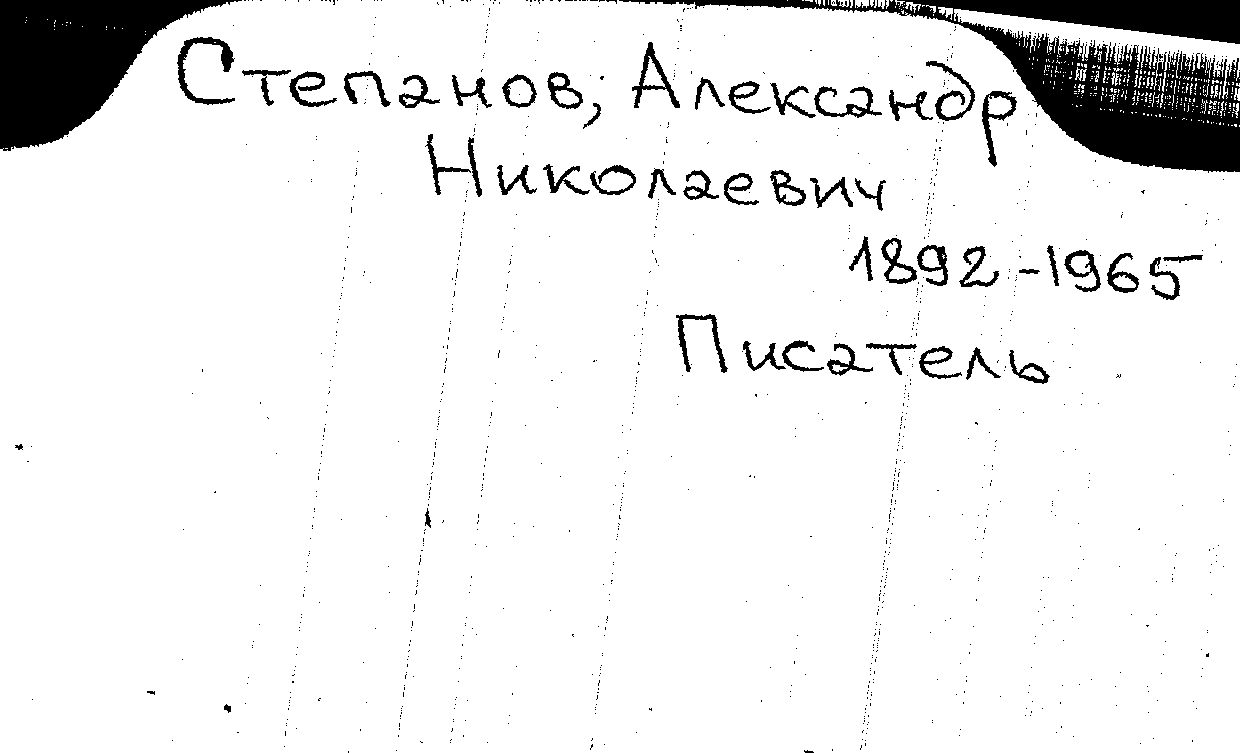 Степанов, Александр
Николаевич
1892-1965
Писатель